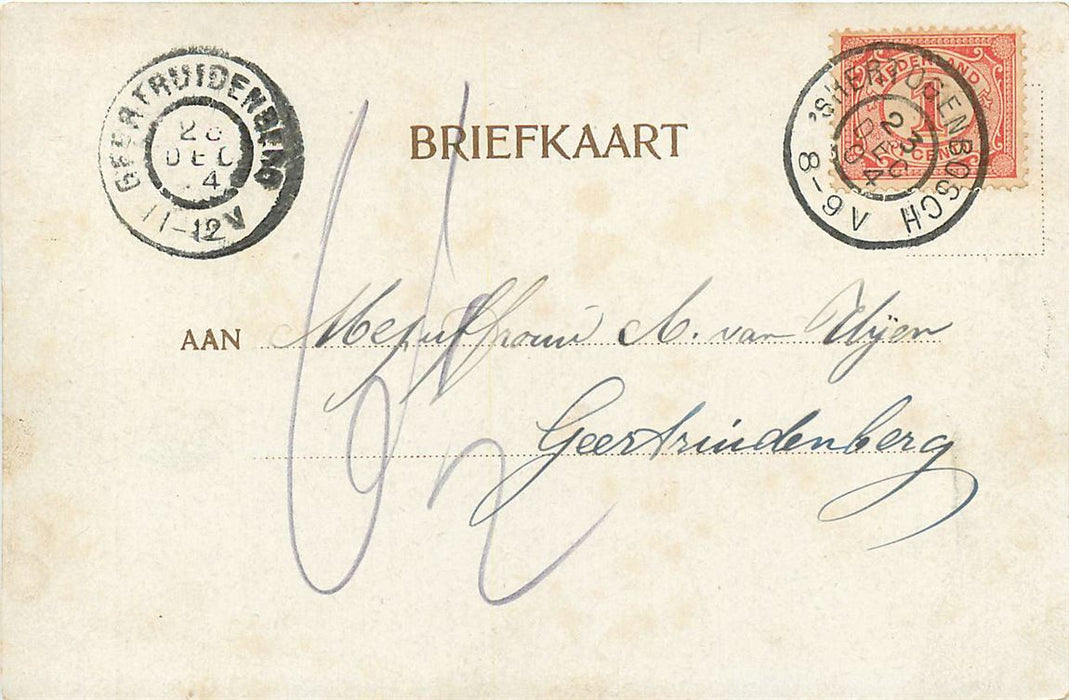 GEERTRUIDENBERG
DEC
4
11-12V
BRIEFKAART
NEDERLAND
1
CENT
'SHERTOGENBOSCH
23
DEC
04
8-9V
AAN Mejuffrouw A. van Wijen
Geertruidenberg
6½